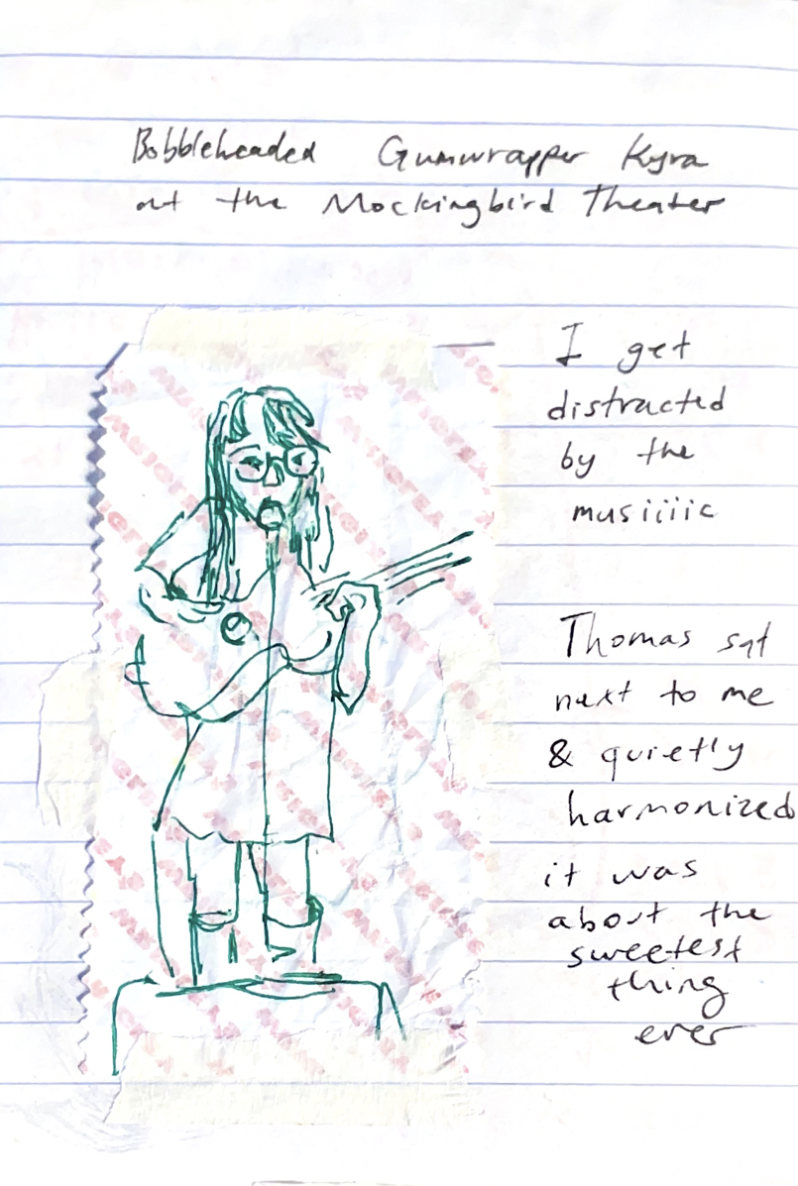 Bobbleheaded Gumwrapper Kyra
at the Mockingbird Theater
I get
distracted
by the
musiiiic
Thomas sat
next to me
& quietly
harmonized
it was
about the
sweetest
thing
ever